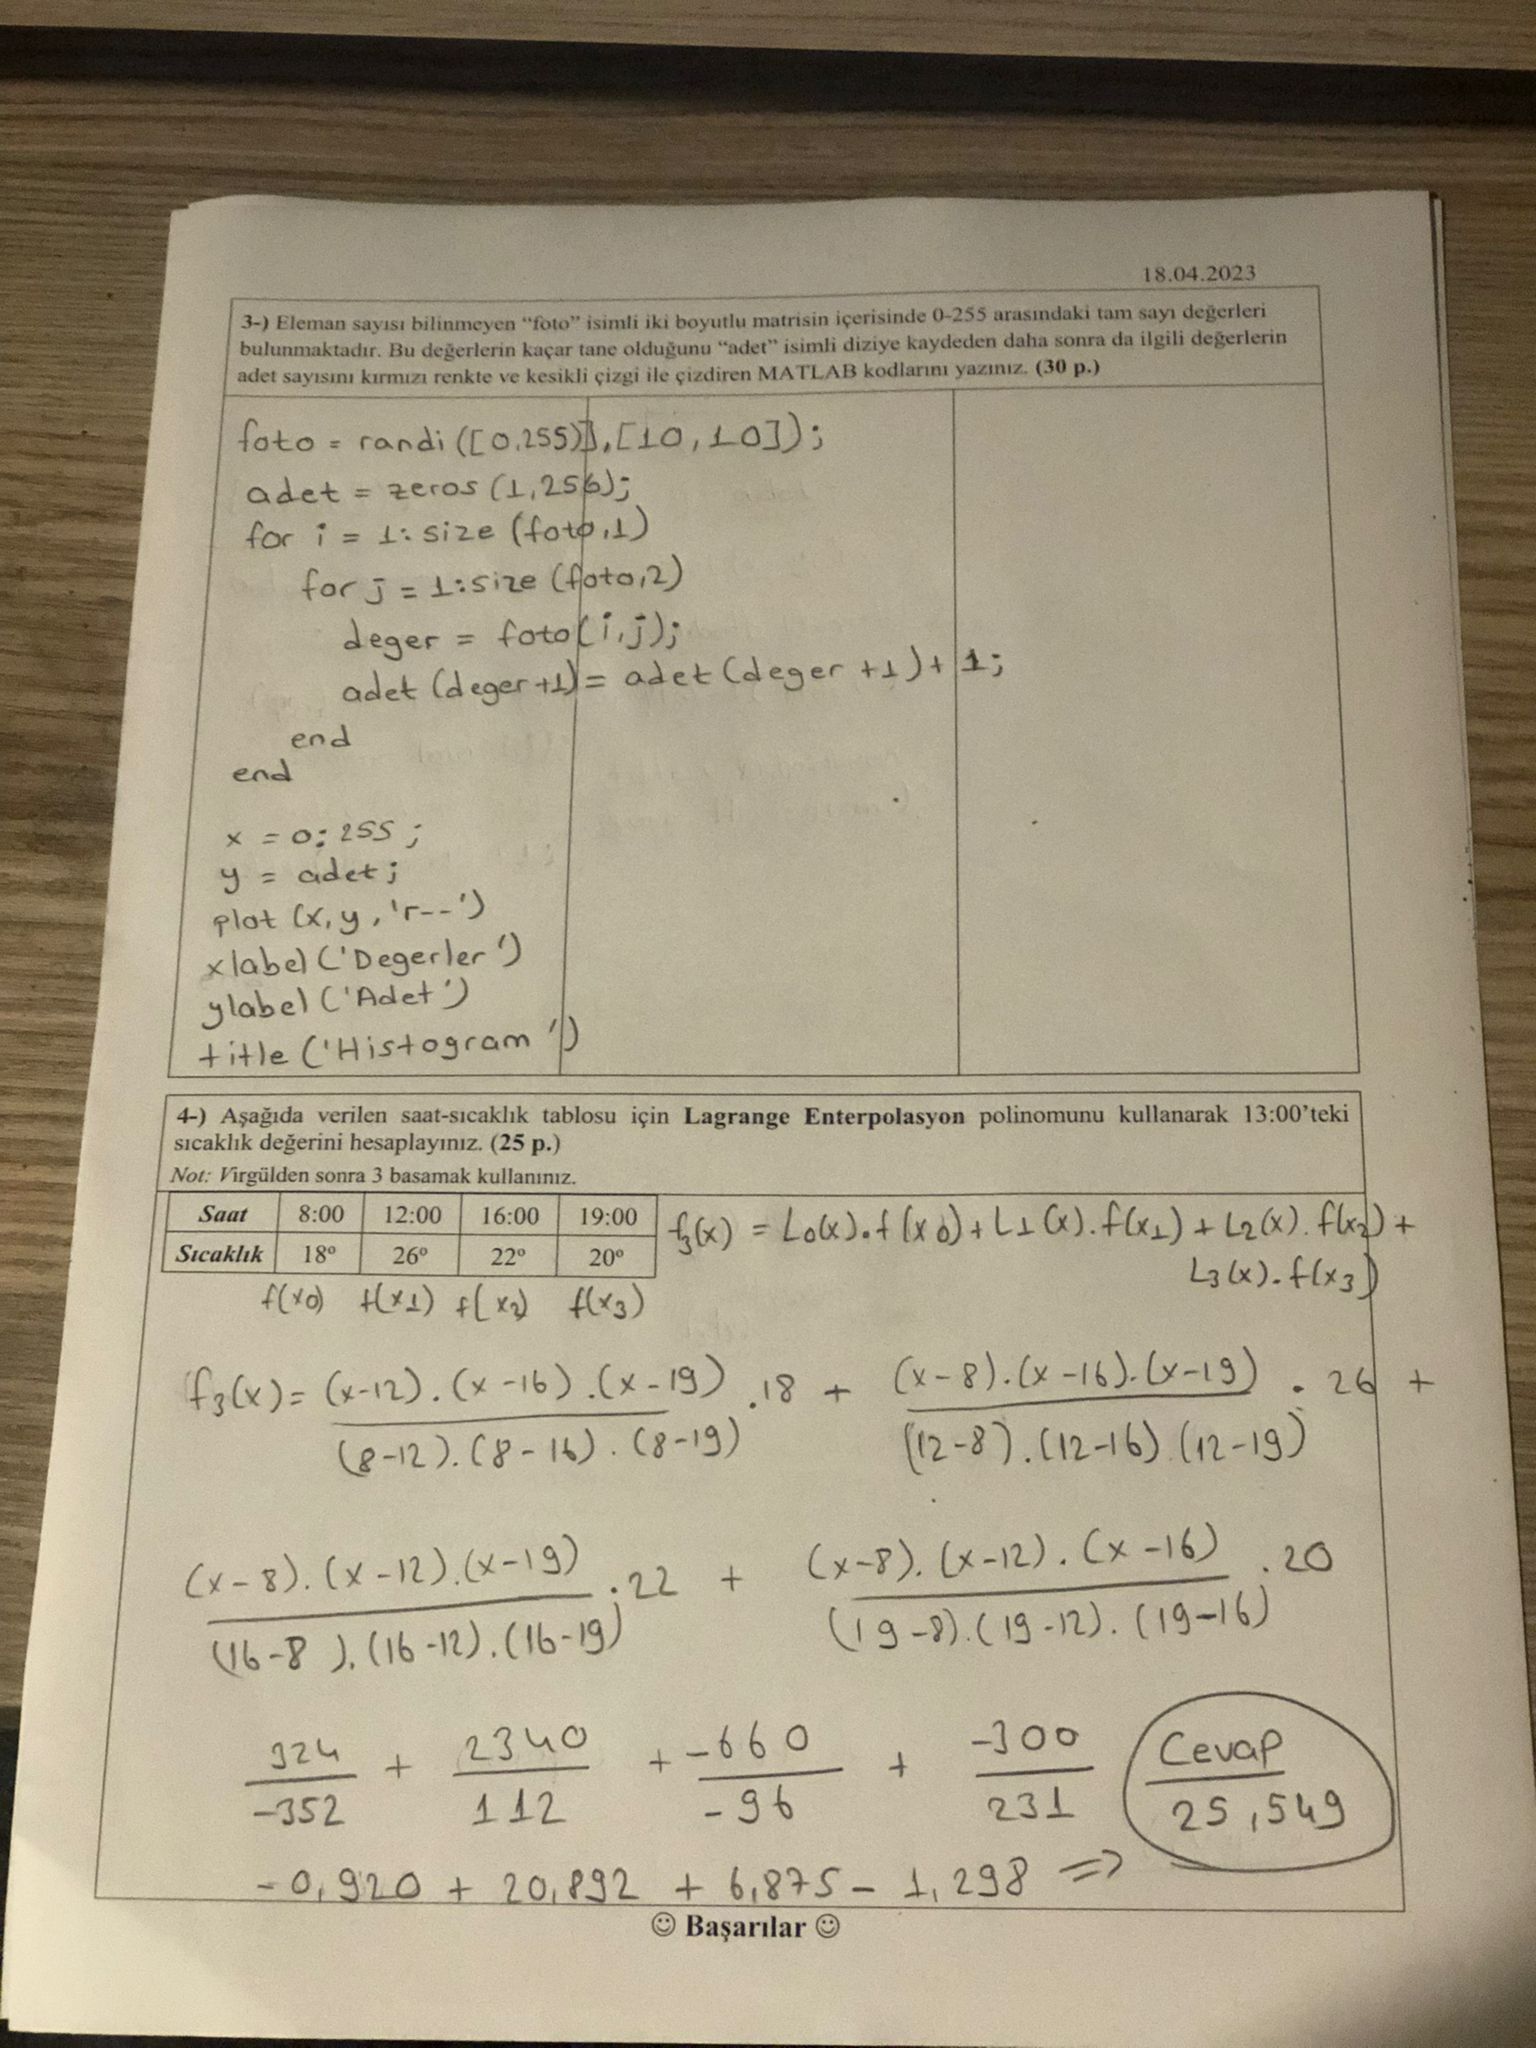 18.04.2023
3-) Eleman sayısı bilinmeyen “foto” isimli iki boyutlu matrisin içerisinde 0-255 arasındaki tam sayı değerleri
bulunmaktadır. Bu değerlerin kaçar tane olduğunu “adet” isimli diziye kaydeden daha sonra da ilgili değerlerin
adet sayısını kırmızı renkte ve kesikli çizgi ile çizdiren MATLAB kodlarını yazınız. (30 p.)
foto = randi ([0,255)],[10,10]);
adet = zeros (1,256);
for i = 1:size (foto,1)
for j = 1:size (foto,2)
deger = foto(i,j);
adet (deger+1) = adet (deger +1) + 1;
end
end
x = 0:255;
y = adet;
plot (x,y,'r--')
xlabel ('Degerler')
ylabel ('Adet')
title ('Histogram')
4-) Aşağıda verilen saat-sıcaklık tablosu için Lagrange Enterpolasyon polinomunu kullanarak 13:00’teki
sıcaklık değerini hesaplayınız. (25 p.)
Not: Virgülden sonra 3 basamak kullanınız.
Saat 8:00 12:00 16:00 19:00
Sıcaklık 18° 26° 22° 20°
f(x0) f(x1) f(x2) f(x3)
f3(x) = L0(x).f(x0)+L1(x).f(x1)+L2(x).f(x2)+
L3(x).f(x3)
f3(x)= (x-12).(x-16).(x-19) .18 + (x-8).(x-16).(x-19) . 26 +
(8-12).(8-16).(8-19) (12-8).(12-16).(12-19)
(x-8).(x-12).(x-19) .22 + (x-8).(x-12).(x-16) .20
(16-8).(16-12).(16-19) (19-8).(19-12).(19-16)
324 + 2340 + -660 + -300
-352 112 -96 231
Cevap
25,549
-0,920 + 20,892 + 6,875 - 1,298 =>
☺ Başarılar ☺